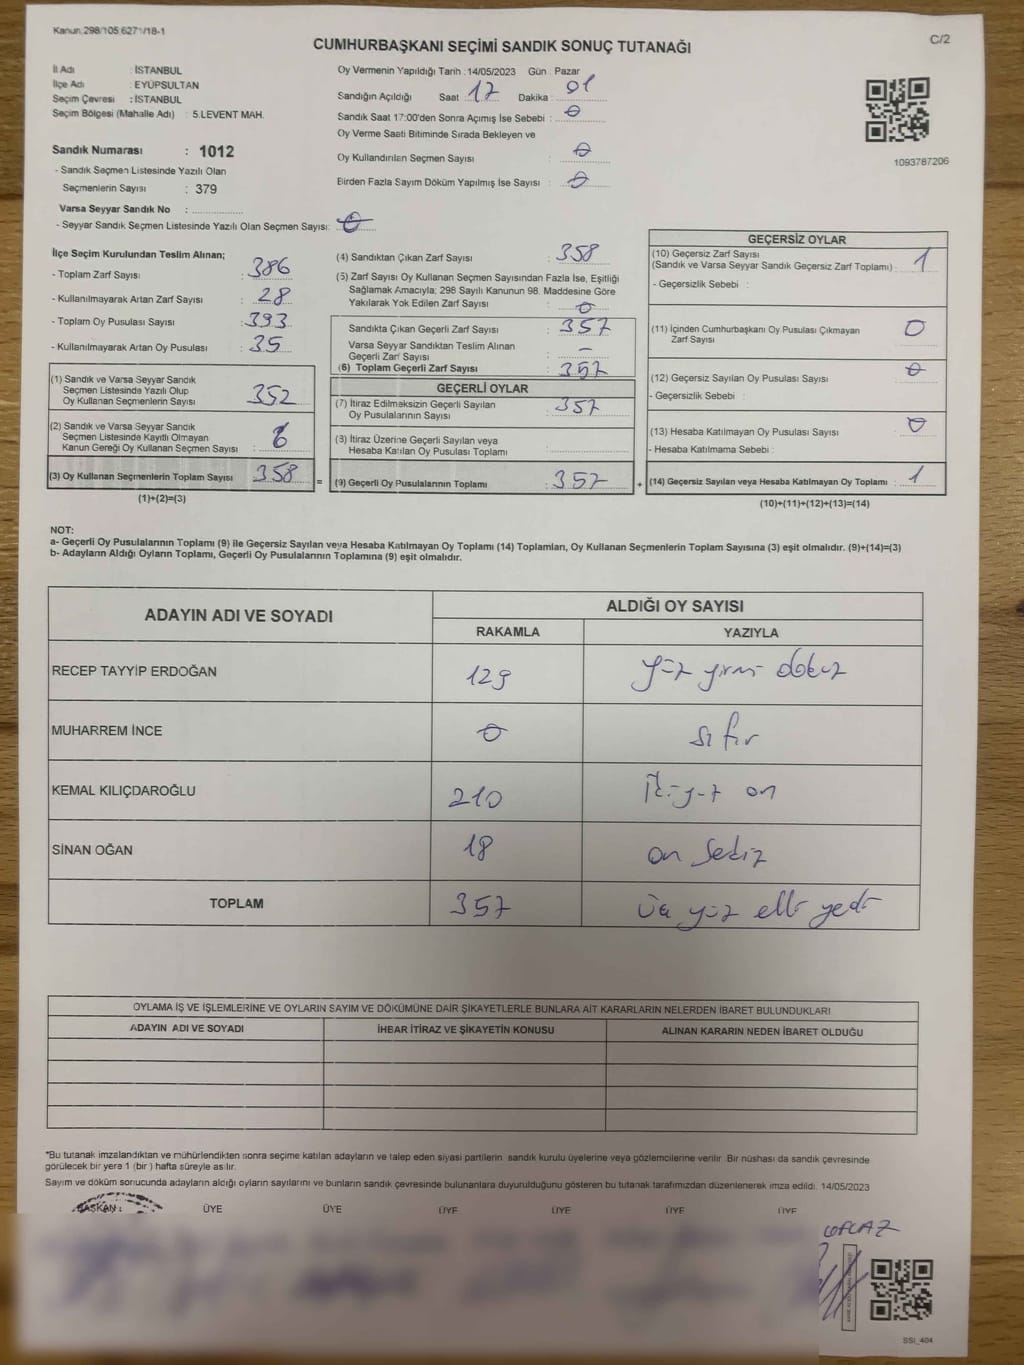 Kanun.298/105.6271/18-1
C/2
CUMHURBAŞKANI SEÇİMİ SANDIK SONUÇ TUTANAĞI
İl Adı : İSTANBUL
İlçe Adı : EYÜPSULTAN
Seçim Çevresi : İSTANBUL
Seçim Bölgesi (Mahalle Adı) : 5.LEVENT MAH.
Sandık Numarası : 1012
- Sandık Seçmen Listesinde Yazılı Olan
Seçmenlerin Sayısı : 379
Varsa Seyyar Sandık No :
- Seyyar Sandık Seçmen Listesinde Yazılı Olan Seçmen Sayısı: 0
Oy Vermenin Yapıldığı Tarih :14/05/2023 Gün : Pazar
Sandığın Açıldığı Saat 17 Dakika : 01
Sandık Saat 17:00'den Sonra Açımış İse Sebebi : 0
Oy Verme Saati Bitiminde Sırada Bekleyen ve
Oy Kullandırılan Seçmen Sayısı : 0
Birden Fazla Sayım Döküm Yapılmış İse Sayısı : 0
1093787206
İlçe Seçim Kurulundan Teslim Alınan;
- Toplam Zarf Sayısı : 386
- Kullanılmayarak Artan Zarf Sayısı : 28
- Toplam Oy Pusulası Sayısı : 393
- Kullanılmayarak Artan Oy Pusulası : 35
(1) Sandık ve Varsa Seyyar Sandık
Seçmen Listesinde Yazılı Olup
Oy Kullanan Seçmenlerin Sayısı : 352
(2) Sandık ve Varsa Seyyar Sandık
Seçmen Listesinde Kayıtlı Olmayan
Kanun Gereği Oy Kullanan Seçmen Sayısı : 6
(3) Oy Kullanan Seçmenlerin Toplam Sayısı : 358
(1)+(2)=(3)
=
(4) Sandıktan Çıkan Zarf Sayısı : 358
(5) Zarf Sayısı Oy Kullanan Seçmen Sayısından Fazla İse, Eşitliği
Sağlamak Amacıyla; 298 Sayılı Kanunun 98. Maddesine Göre
Yakılarak Yok Edilen Zarf Sayısı : 0
Sandıkta Çıkan Geçerli Zarf Sayısı : 357
Varsa Seyyar Sandıktan Teslim Alınan
Geçerli Zarf Sayısı : -
(6) Toplam Geçerli Zarf Sayısı : 357
GEÇERLİ OYLAR
(7) İtiraz Edilmeksizin Geçerli Sayılan
Oy Pusulalarının Sayısı : 357
(3) İtiraz Üzerine Geçerli Sayılan veya
Hesaba Katılan Oy Pusulası Toplamı :
(9) Geçerli Oy Pusulalarının Toplamı : 357
+
GEÇERSİZ OYLAR
(10) Geçersiz Zarf Sayısı
(Sandık ve Varsa Seyyar Sandık Geçersiz Zarf Toplamı) : 1
- Geçersizlik Sebebi :
(11) İçinden Cumhurbaşkanı Oy Pusulası Çıkmayan
Zarf Sayısı : 0
(12) Geçersiz Sayılan Oy Pusulası Sayısı : 0
- Geçersizlik Sebebi :
(13) Hesaba Katılmayan Oy Pusulası Sayısı : 0
- Hesaba Katılmama Sebebi :
(14) Geçersiz Sayılan veya Hesaba Katılmayan Oy Toplamı : 1
(10)+(11)+(12)+(13)=(14)
NOT:
a- Geçerli Oy Pusulalarının Toplamı (9) ile Geçersiz Sayılan veya Hesaba Katılmayan Oy Toplamı (14) Toplamları, Oy Kullanan Seçmenlerin Toplam Sayısına (3) eşit olmalıdır. (9)+(14)=(3)
b- Adayların Aldığı Oyların Toplamı, Geçerli Oy Pusulalarının Toplamına (9) eşit olmalıdır.
ADAYIN ADI VE SOYADI ALDIĞI OY SAYISI
RAKAMLA YAZIYLA
RECEP TAYYİP ERDOĞAN 129 yüz yirmi dokuz
MUHARREM İNCE 0 sıfır
KEMAL KILIÇDAROĞLU 210 İki yüz on
SİNAN OĞAN 18 on sekiz
TOPLAM 357 üç yüz elli yedi
OYLAMA İŞ VE İŞLEMLERİNE VE OYLARIN SAYIM VE DÖKÜMÜNE DAİR ŞİKAYETLERLE BUNLARA AİT KARARLARIN NELERDEN İBARET BULUNDUKLARI
ADAYIN ADI VE SOYADI İHBAR İTİRAZ VE ŞİKAYETİN KONUSU ALINAN KARARIN NEDEN İBARET OLDUĞU
*Bu tutanak imzalandıktan ve mühürlendikten sonra seçime katılan adayların ve talep eden siyasi partilerin sandık kurulu üyelerine veya gözlemcilerine verilir. Bir nüshası da sandık çevresinde
görülecek bir yere 1 (bir) hafta süreyle asılır.
Sayım ve döküm sonucunda adayların aldığı oyların sayılarını ve bunların sandık çevresinde bulunanlara duyurulduğunu gösteren bu tutanak tarafımızdan düzenlenerek imza edildi. 14/05/2023
BAŞKAN ÜYE ÜYE ÜYE ÜYE ÜYE ÜYE
SSI_404